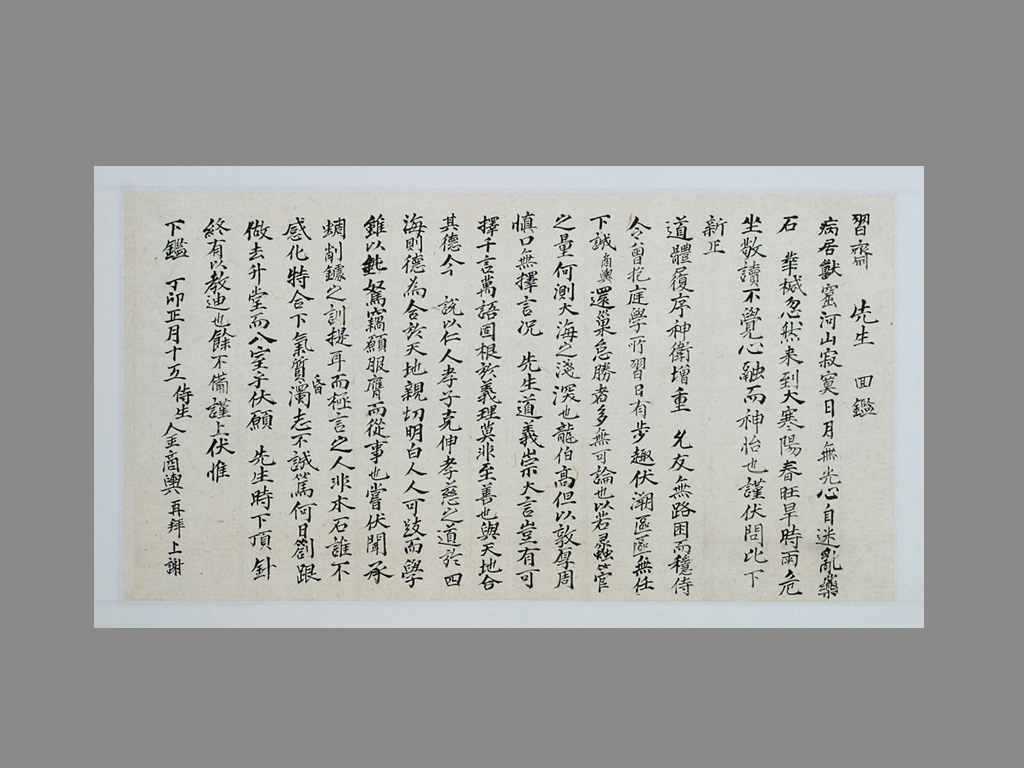 習齋 先生 回鑑
病居獸窟河山寂寞日月無光心自迷亂藥
石 華椷忽然来到大寒陽春旺旱時雨危
坐敬讀不覺心融而神怡也謹伏問比下
新正
道體履序神衛增重 允友無路困而穩侍
令曾抱庭學所習日有步趣伏溯區區無任
下誠商輿還巢怠勝者多無可論也以若蠡管
之量何測大海之淺深也龍伯高但以敦厚周
慎口無擇言况 先生道義崇大言豈有可
擇千言萬語固根於義理莫非至善也與天地合
其德今 說以仁人孝子克伸孝慈之道於四
海則德為合於天地親切明白人人可跂而學
雖以鈍駑竊願服膺而從事也嘗伏聞 承
蜩削鐻之訓提耳而極言之人非木石誰不
感化特合下氣質昏濁志不誠篤何日劄跟
做去升堂而入室乎伏願 先生時下頂針
終有以教迪也餘不備謹上伏惟
下鑑 丁卯正月十五 侍生 金商輿 再拜上謝